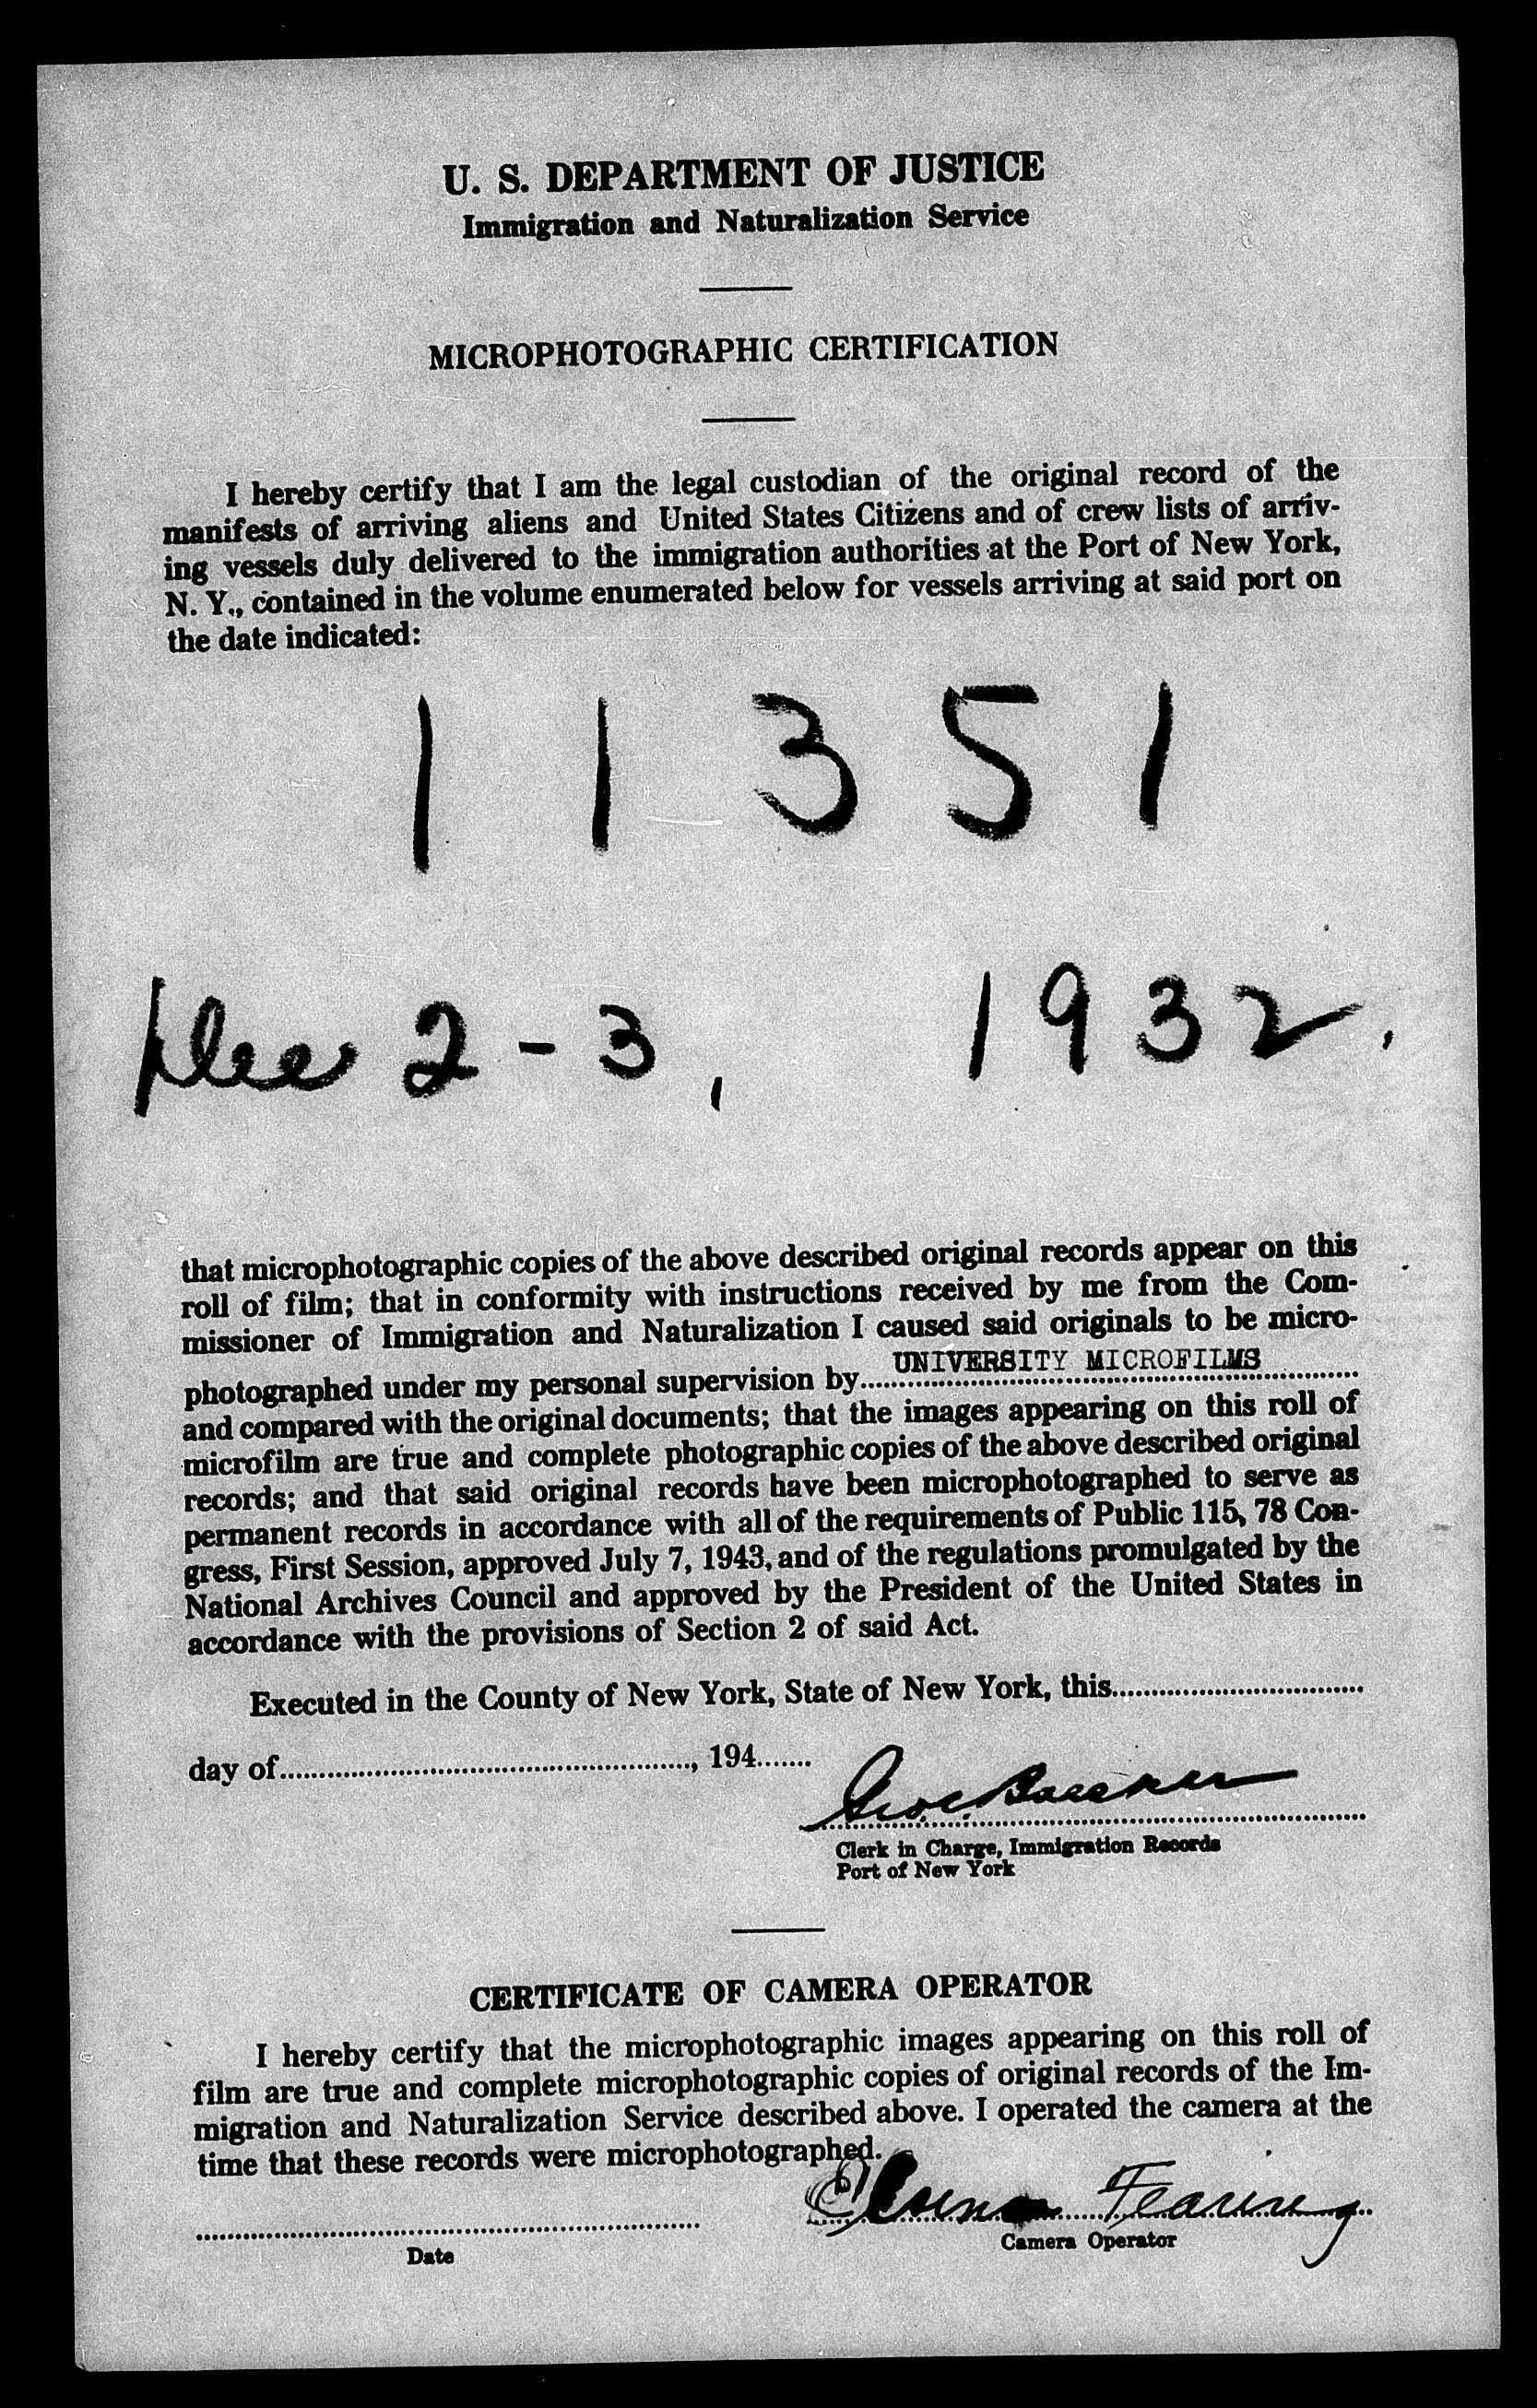 U. S. DEPARTMENT OF JUSTICE
Immigration and Naturalization Service
MICROPHOTOGRAPHIC CERTIFICATION
I hereby certify that I am the legal custodian of the original record of the
manifests of arriving aliens and United States Citizens and of crew lists of arriv-
ing vessels duly delivered to the immigration authorities at the Port of New York,
N. Y., contained in the volume enumerated below for vessels arriving at said port on
the date indicated:
1 1 3 5 1
Dec 2 - 3, 1932.
that microphotographic copies of the above described original records appear on this
roll of film; that in conformity with instructions received by me from the Com-
missioner of Immigration and Naturalization I caused said originals to be micro-
photographed under my personal supervision by UNIVERSITY MICROFILMS
and compared with the original documents; that the images appearing on this roll of
microfilm are true and complete photographic copies of the above described original
records; and that said original records have been microphotographed to serve as
permanent records in accordance with all of the requirements of Public 115, 78 Con-
gress, First Session, approved July 7, 1943, and of the regulations promulgated by the
National Archives Council and approved by the President of the United States in
accordance with the provisions of Section 2 of said Act.
Executed in the County of New York, State of New York, this
day of , 194
Clerk in Charge, Immigration Records
Port of New York
CERTIFICATE OF CAMERA OPERATOR
I hereby certify that the microphotographic images appearing on this roll of
film are true and complete microphotographic copies of original records of the Im-
migration and Naturalization Service described above. I operated the camera at the
time that these records were microphotographed.
Fearing
Date
Camera Operator